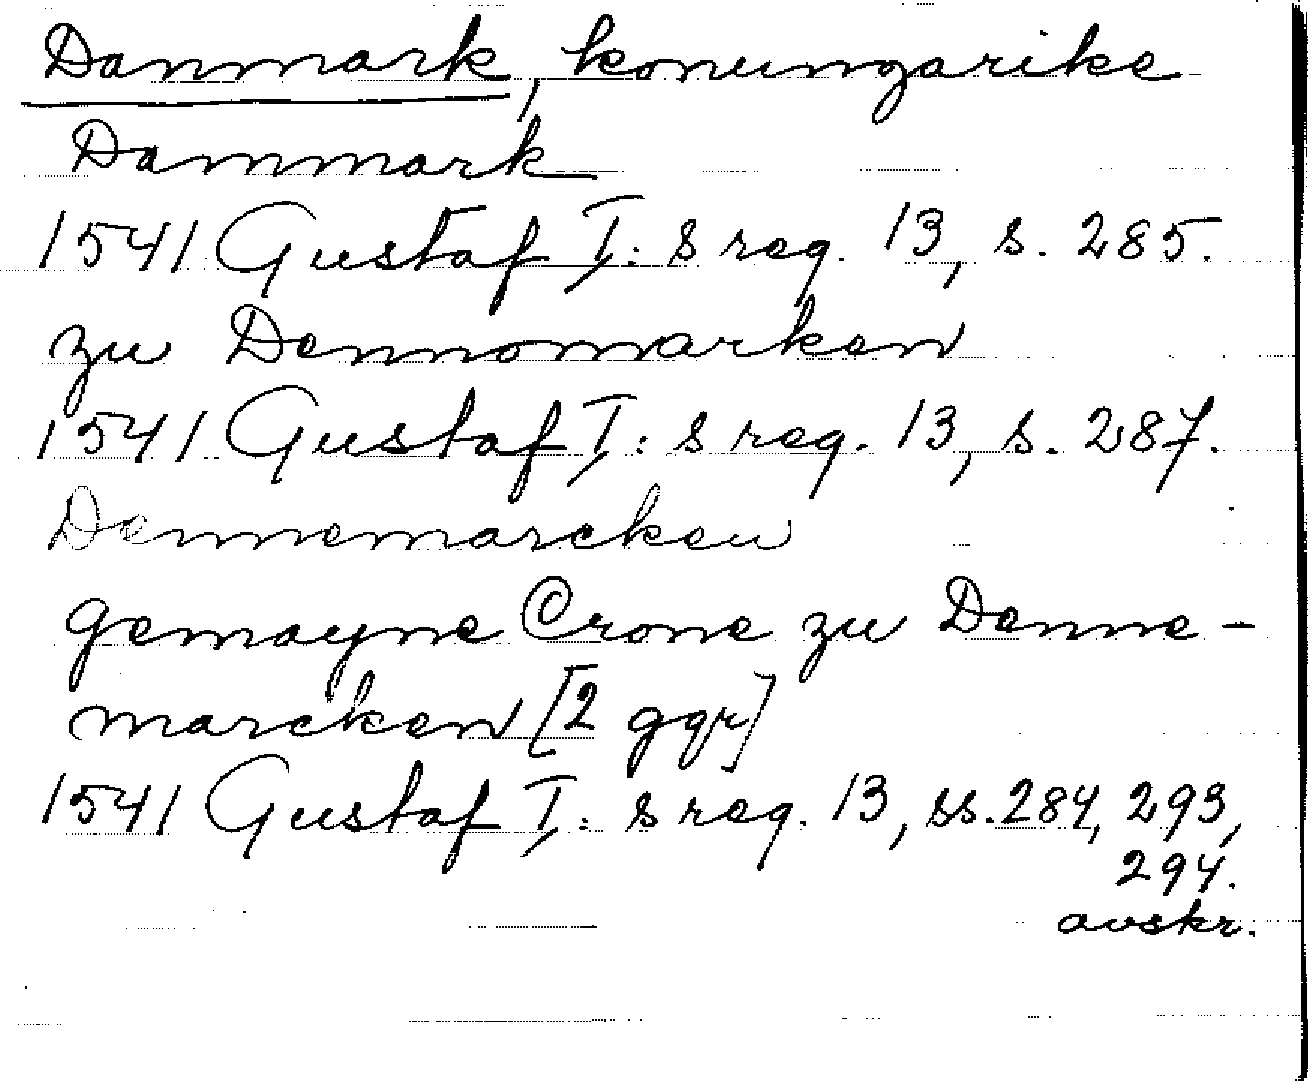 Danmark, konungarike
Dammark
1541 Gustaf I:s reg. 13, s. 285.
zu Dennomarken
1541 Gustaf I:s reg. 13, s. 287.
Dennemarcken
gemayne Crone zu Denne-
marcken [2 ggr]
1541 Gustaf I:s reg. 13, ss. 284, 293,
294.
avskr.